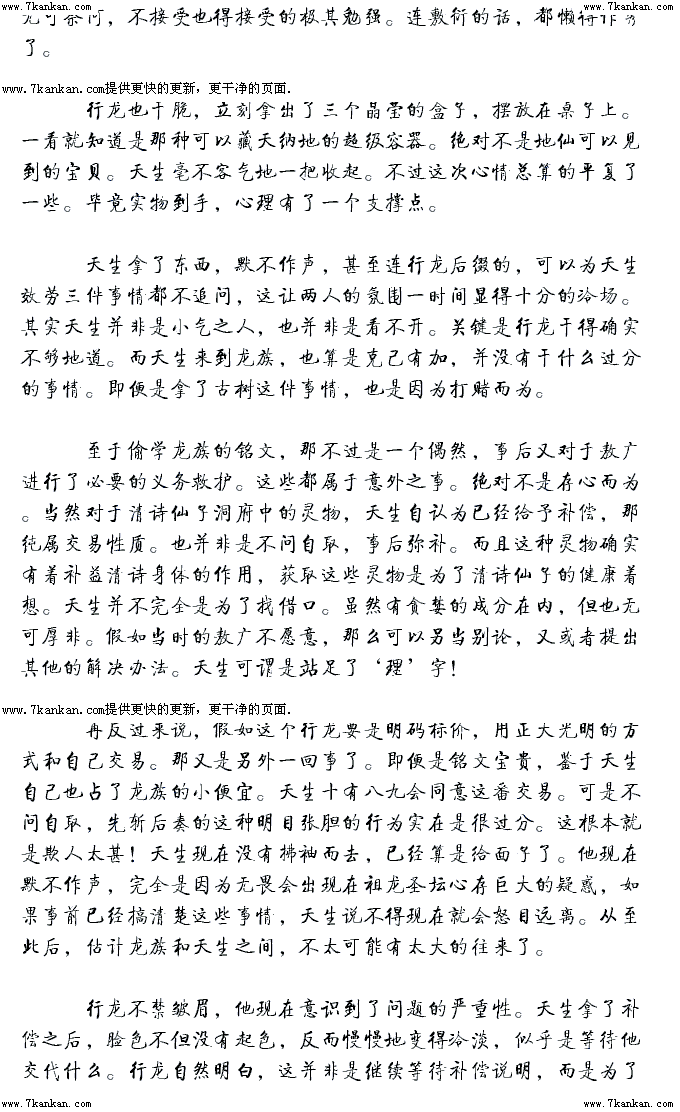 www.7kankan.com www.7kankan.com
无可奈何，不接受也得接受的极其勉强。连敷衍的话，都懒得作秀
了。
www.7kankan.com提供更快的更新，更干净的页面.
行龙也干脆，立刻拿出了三个晶莹的盒子，摆放在桌子上。
一看就知道是那种可以藏天纳地的超级容器。绝对不是地仙可以见
到的宝贝。天生毫不客气地一把收起。不过这次心情总算的平复了
一些。毕竟实物到手，心理有了一个支撑点。
天生拿了东西，默不作声，甚至连行龙后缀的，可以为天生
效劳三件事情都不追问，这让两人的氛围一时间显得十分的冷场。
其实天生并非是小气之人，也并非是看不开。关键是行龙干得确实
不够地道。而天生来到龙族，也算是克己有加，并没有干什么过分
的事情。即便是拿了古树这件事情，也是因为打赌而为。
至于偷学龙族的铭文，那不过是一个偶然，事后又对于敖广
进行了必要的义务救护。这些都属于意外之事。绝对不是存心而为
。当然对于清诗仙子洞府中的灵物，天生自认为已经给予补偿，那
纯属交易性质。也并非是不问自取，事后弥补。而且这种灵物确实
有着补益清诗身体的作用，获取这些灵物是为了清诗仙子的健康着
想。天生并不完全是为了找借口。虽然有贪婪的成分在内，但也无
可厚非。假如当时的敖广不愿意，那么可以另当别论，又或者提出
其他的解决办法。天生可谓是站足了‘理’字！
www.7kankan.com提供更快的更新，更干净的页面.
再反过来说，假如这个行龙要是明码标价，用正大光明的方
式和自己交易。那又是另外一回事了。即便是铭文宝贵，鉴于天生
自己也占了龙族的小便宜。天生十有八九会同意这番交易。可是不
问自取，先斩后奏的这种明目张胆的行为实在是很过分。这根本就
是欺人太甚！天生现在没有拂袖而去，已经算是给面子了。他现在
默不作声，完全是因为无畏会出现在祖龙圣坛心存巨大的疑惑，如
果事前已经搞清楚这些事情，天生说不得现在就会怒目远离。从至
此后，估计龙族和天生之间，不太可能有太大的往来了。
行龙不禁皱眉，他现在意识到了问题的严重性。天生拿了补
偿之后，脸色不但没有起色，反而慢慢地变得冷淡，似乎是等待他
交代什么。行龙自然明白，这并非是继续等待补偿说明，而是为了
www.7kankan.com www.7kankan.com